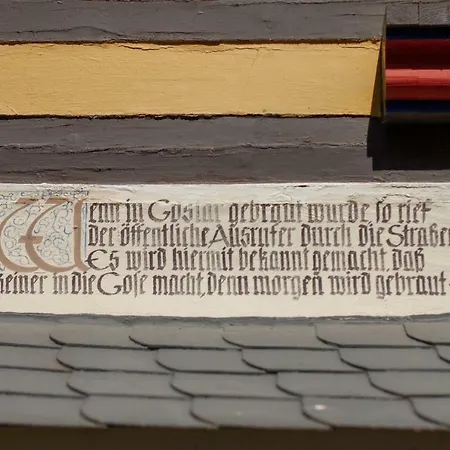 Wenn in Goslar gebraut wurde so rief
der öffentliche Ausrufer durch die Straßen
Es wird hiermit bekannt gemacht, daß
keiner in die Gose macht, denn morgen wird gebraut